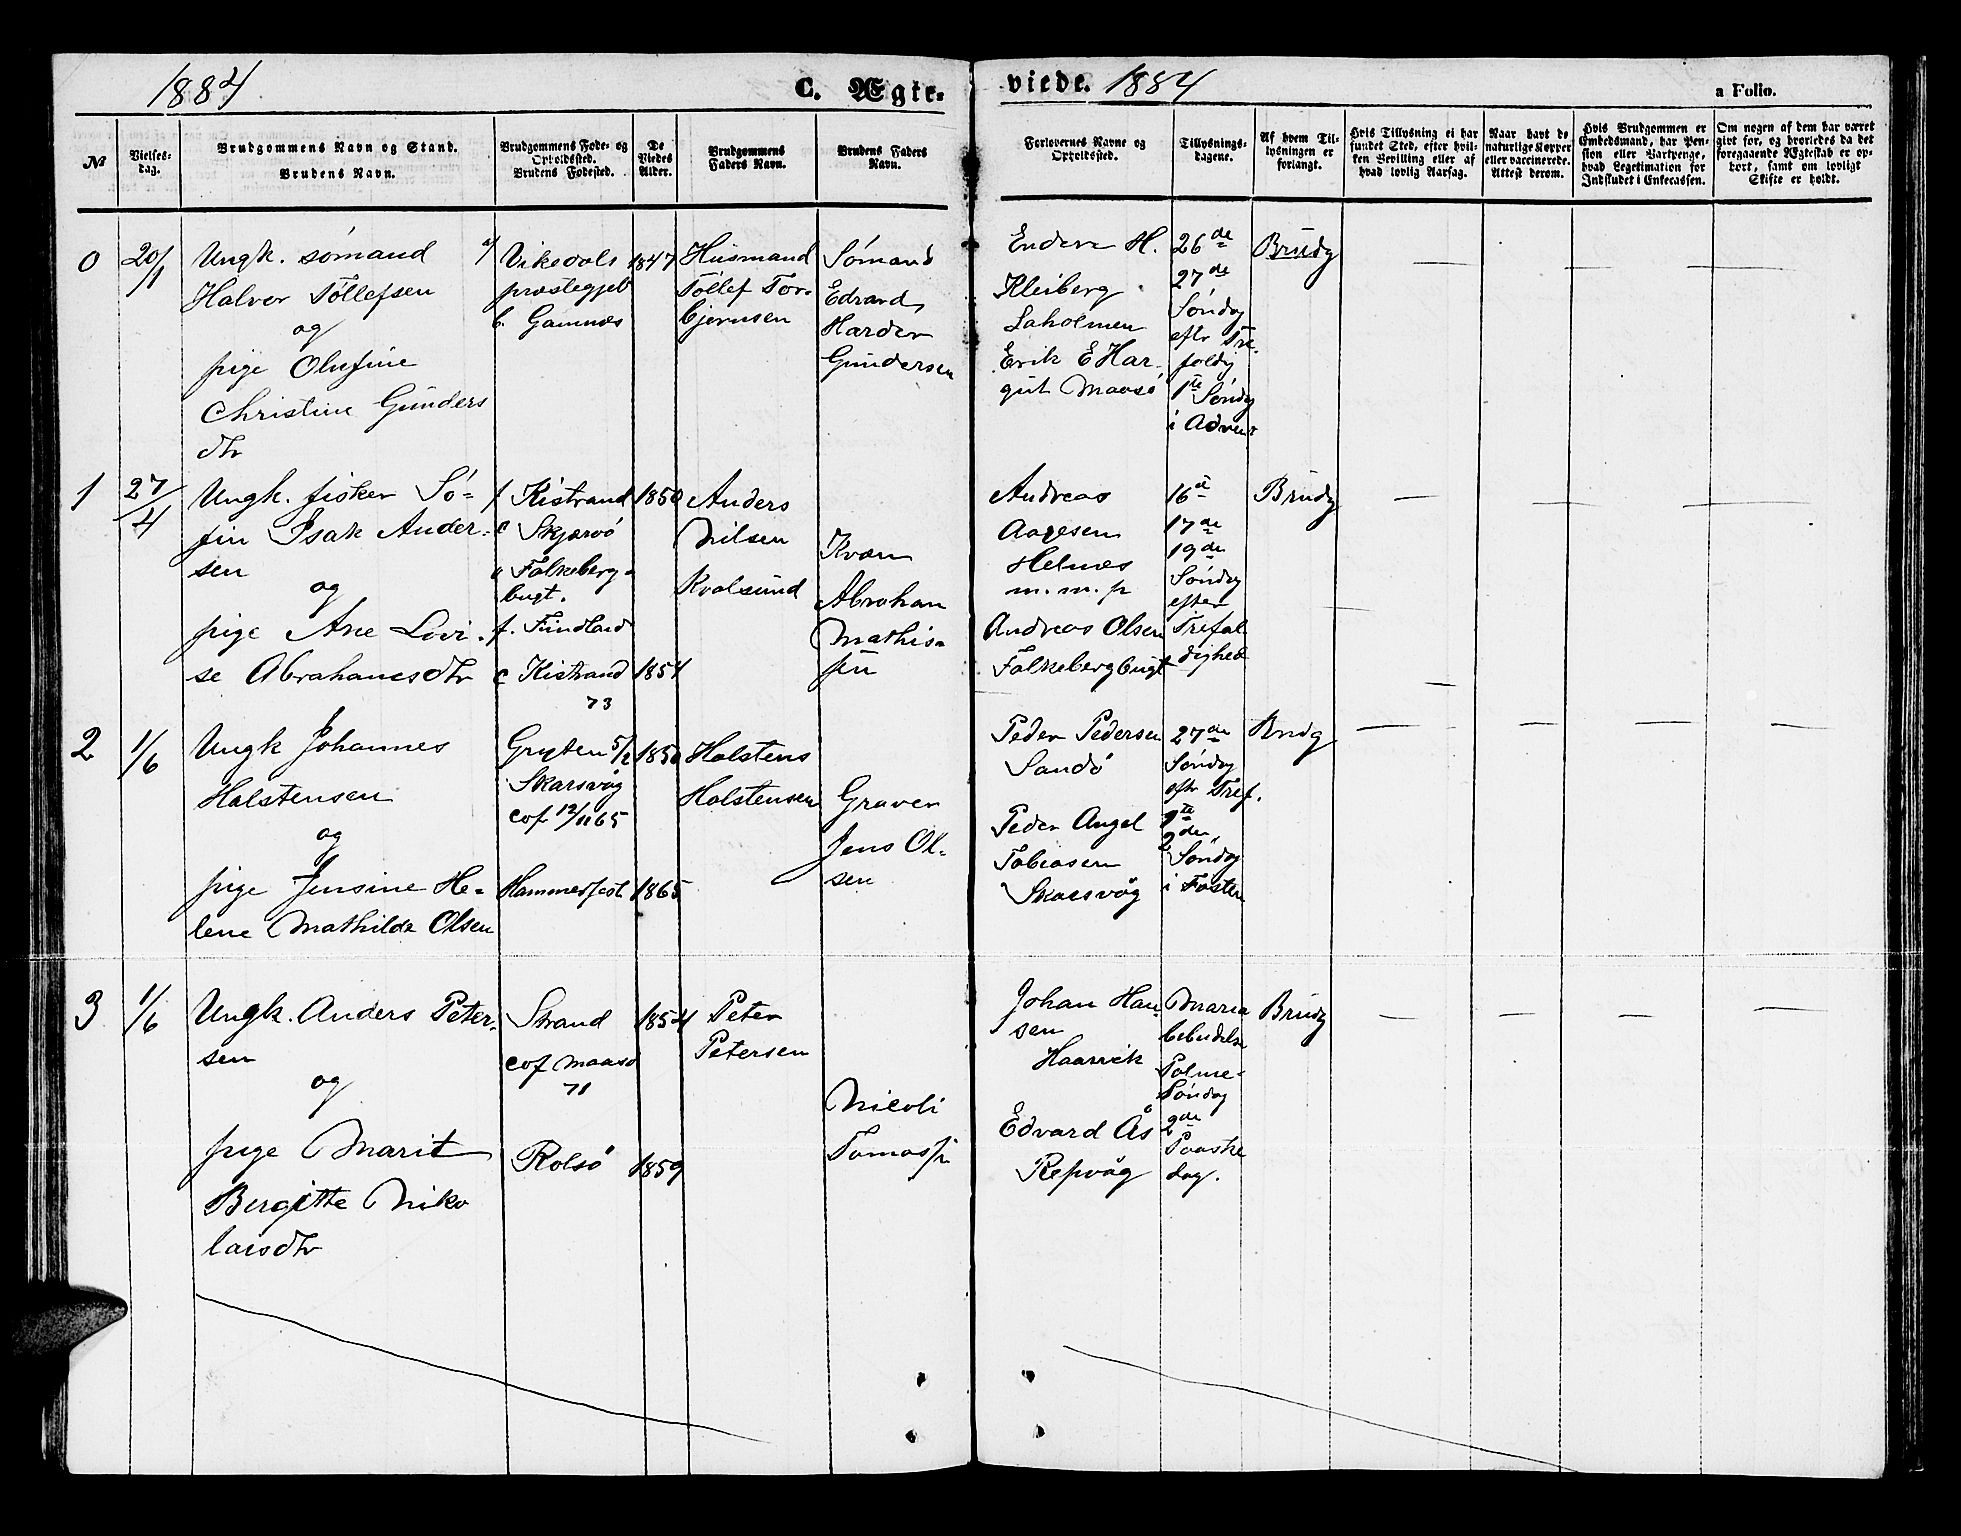 1884
C. Ægte-
viede. 1884
a Folio.
№
Vielses-
dag.
Brudgommens Navn og Stand.
Brudens Navn.
Brudgommens Føde- og
Opholdssted.
Brudens Fødested.
De
Viedes
Alder.
Brudgommens
Faders Navn.
Brudens Faders
Navn.
Forlovernes Navne og
Opholdssted.
Tillysnings-
dagene.
Af hvem Til-
lysningen er
forlangt.
Hvis Tillysning ei har
fundet Sted, efter hvil-
ken Bevilling eller af
hvad lovlig Aarsag.
Naar havt de
naturlige Kopper
eller vaccinerede.
Attest derom.
Hvis Brudgommen er
Embedsmand, har Pen-
sion eller Vartpenge,
hvad Legitimation for
Indskudet i Enkecassen.
Om nogen af dem har været
gift før, og hvorledes da det
foregaaende Ægteskab er op-
hørt, samt om lovligt
Skifte er holdt.
0
20/1
Ungk. sømand
Halver Tøllefsen
og
pige Olufine
Christine Gunders
dtr
Vikedals
præstegjeld
b. Gamnæs
1847
Husmand
Tøllef Tor-
bjørnsen
Sømand
Edvard
Harder
Gundersen
Endere H.
Kleiberg
Laholmen
Erik E Har-
qut Maasø
26de
27de
Søndag
eftr Tre-
foldig
1te Søndg
i Advent
Brudg
1
27/4
Ungk. fisker Sø-
fin Isak Ander-
sen
og
pige Ane Lovi-
se Abrahamsdtr
f Kistrand
c Skjærvø
Falkeberg-
bugt.
f. Findland
c Kistrand
73
1850
1854
Anders
Nilsen
Kvalsund
Kvæn
Abraham
Mathis-
sen
Andreas
Aagesen
Helnes
m. m. p
Andreas Olsen
Falkebergbugt
16de
17de
19de
Søndag
efter
Trefol
dighed
Brudg
2
1/6
Ungk Johannes
Holstensen
og
pige Jensine He-
lene Mathilde Olsen
Gryten 5/2
Skarsvåg
cof 12/11 65
Hammerfest
1850
1865
Holstens
Holstensen
Graver
Jens Ol-
sen
Peder Pedersen
Sandø
Peder Angel
Tobiasen
Skarsvåg
27de
Søndag
eftr Tref.
1te
2den
Søndag
i Fasten
Brudg
3
1/6
Ungk. Anders Peter-
sen
og
pige Marit
Bergitte Niko
laisdtr
Strand
cof Maasø
71
Rolsø
1854
1859
Peter
Petersen
Nicoli
Tomass
Johan Han-
sen
Haarvik
Edvard Ås
Repvåg
Maria
bebudelse
Palme-
søndag
2de
Paaske
dag.
Brudg